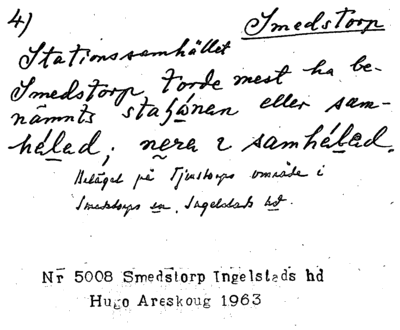 4) Smedstorp
Stationssamhället
Smedstorp torde mest ha be-
nämnts stahånen eller sam-
hálad; nera i samhálad.
Beläget på Tjustorps område i
Smedstorps sn, Ingelstads hd.
Nr 5008 Smedstorp Ingelstads hd
Hugo Areskoug 1963